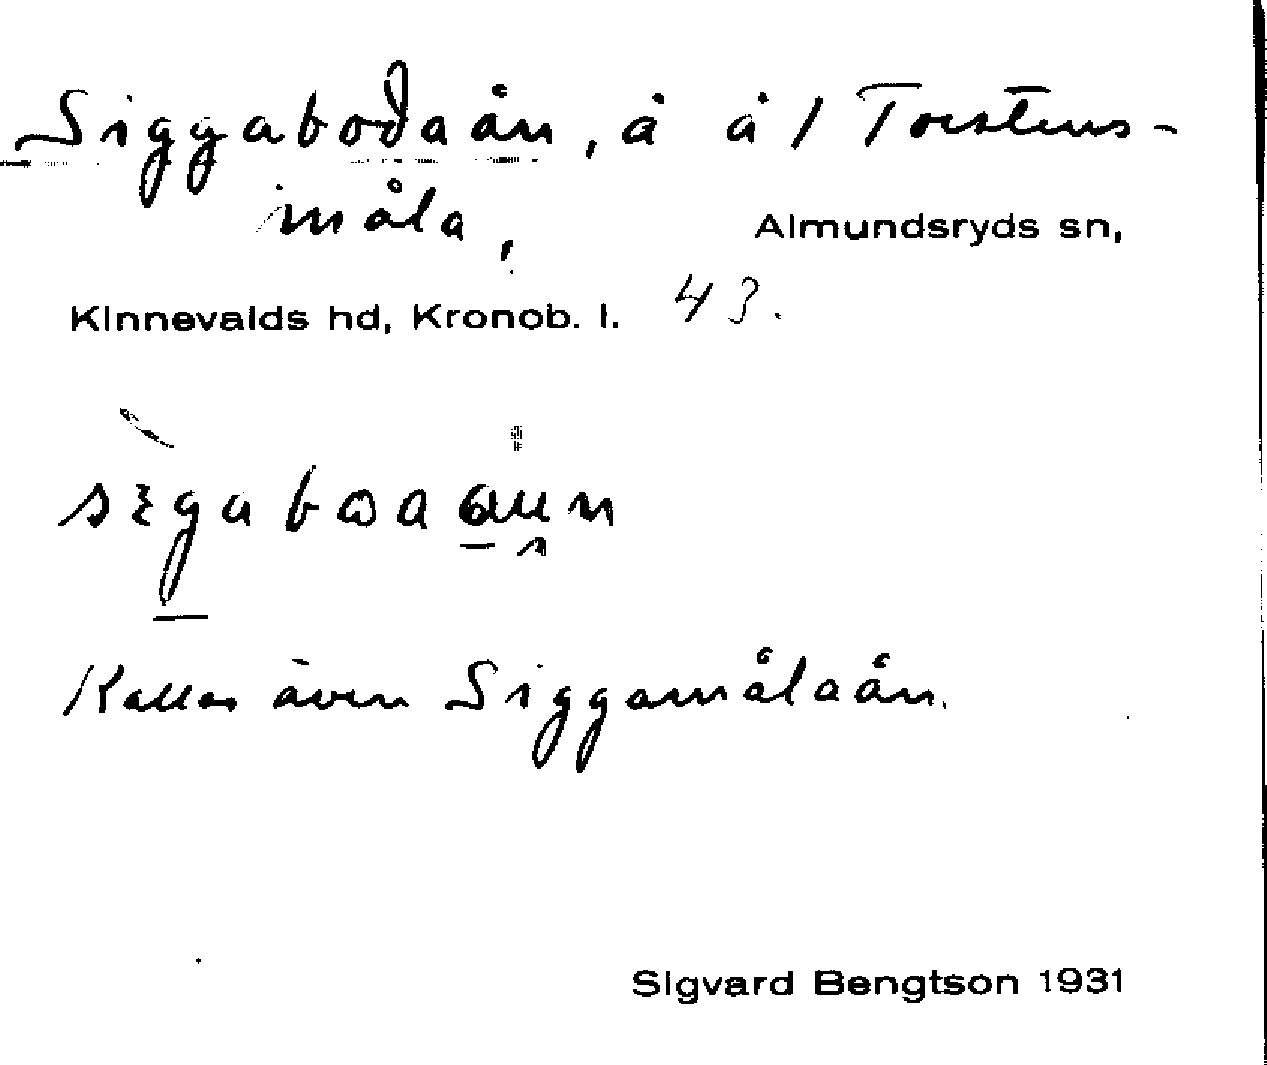 Siggabodaån, å å 1 Torstens-
måla,
Almundsryds sn,
Kinnevalds hd, Kronob. l. 43.
Kallas även Siggamålaån.
Sigvard Bengtson 1931